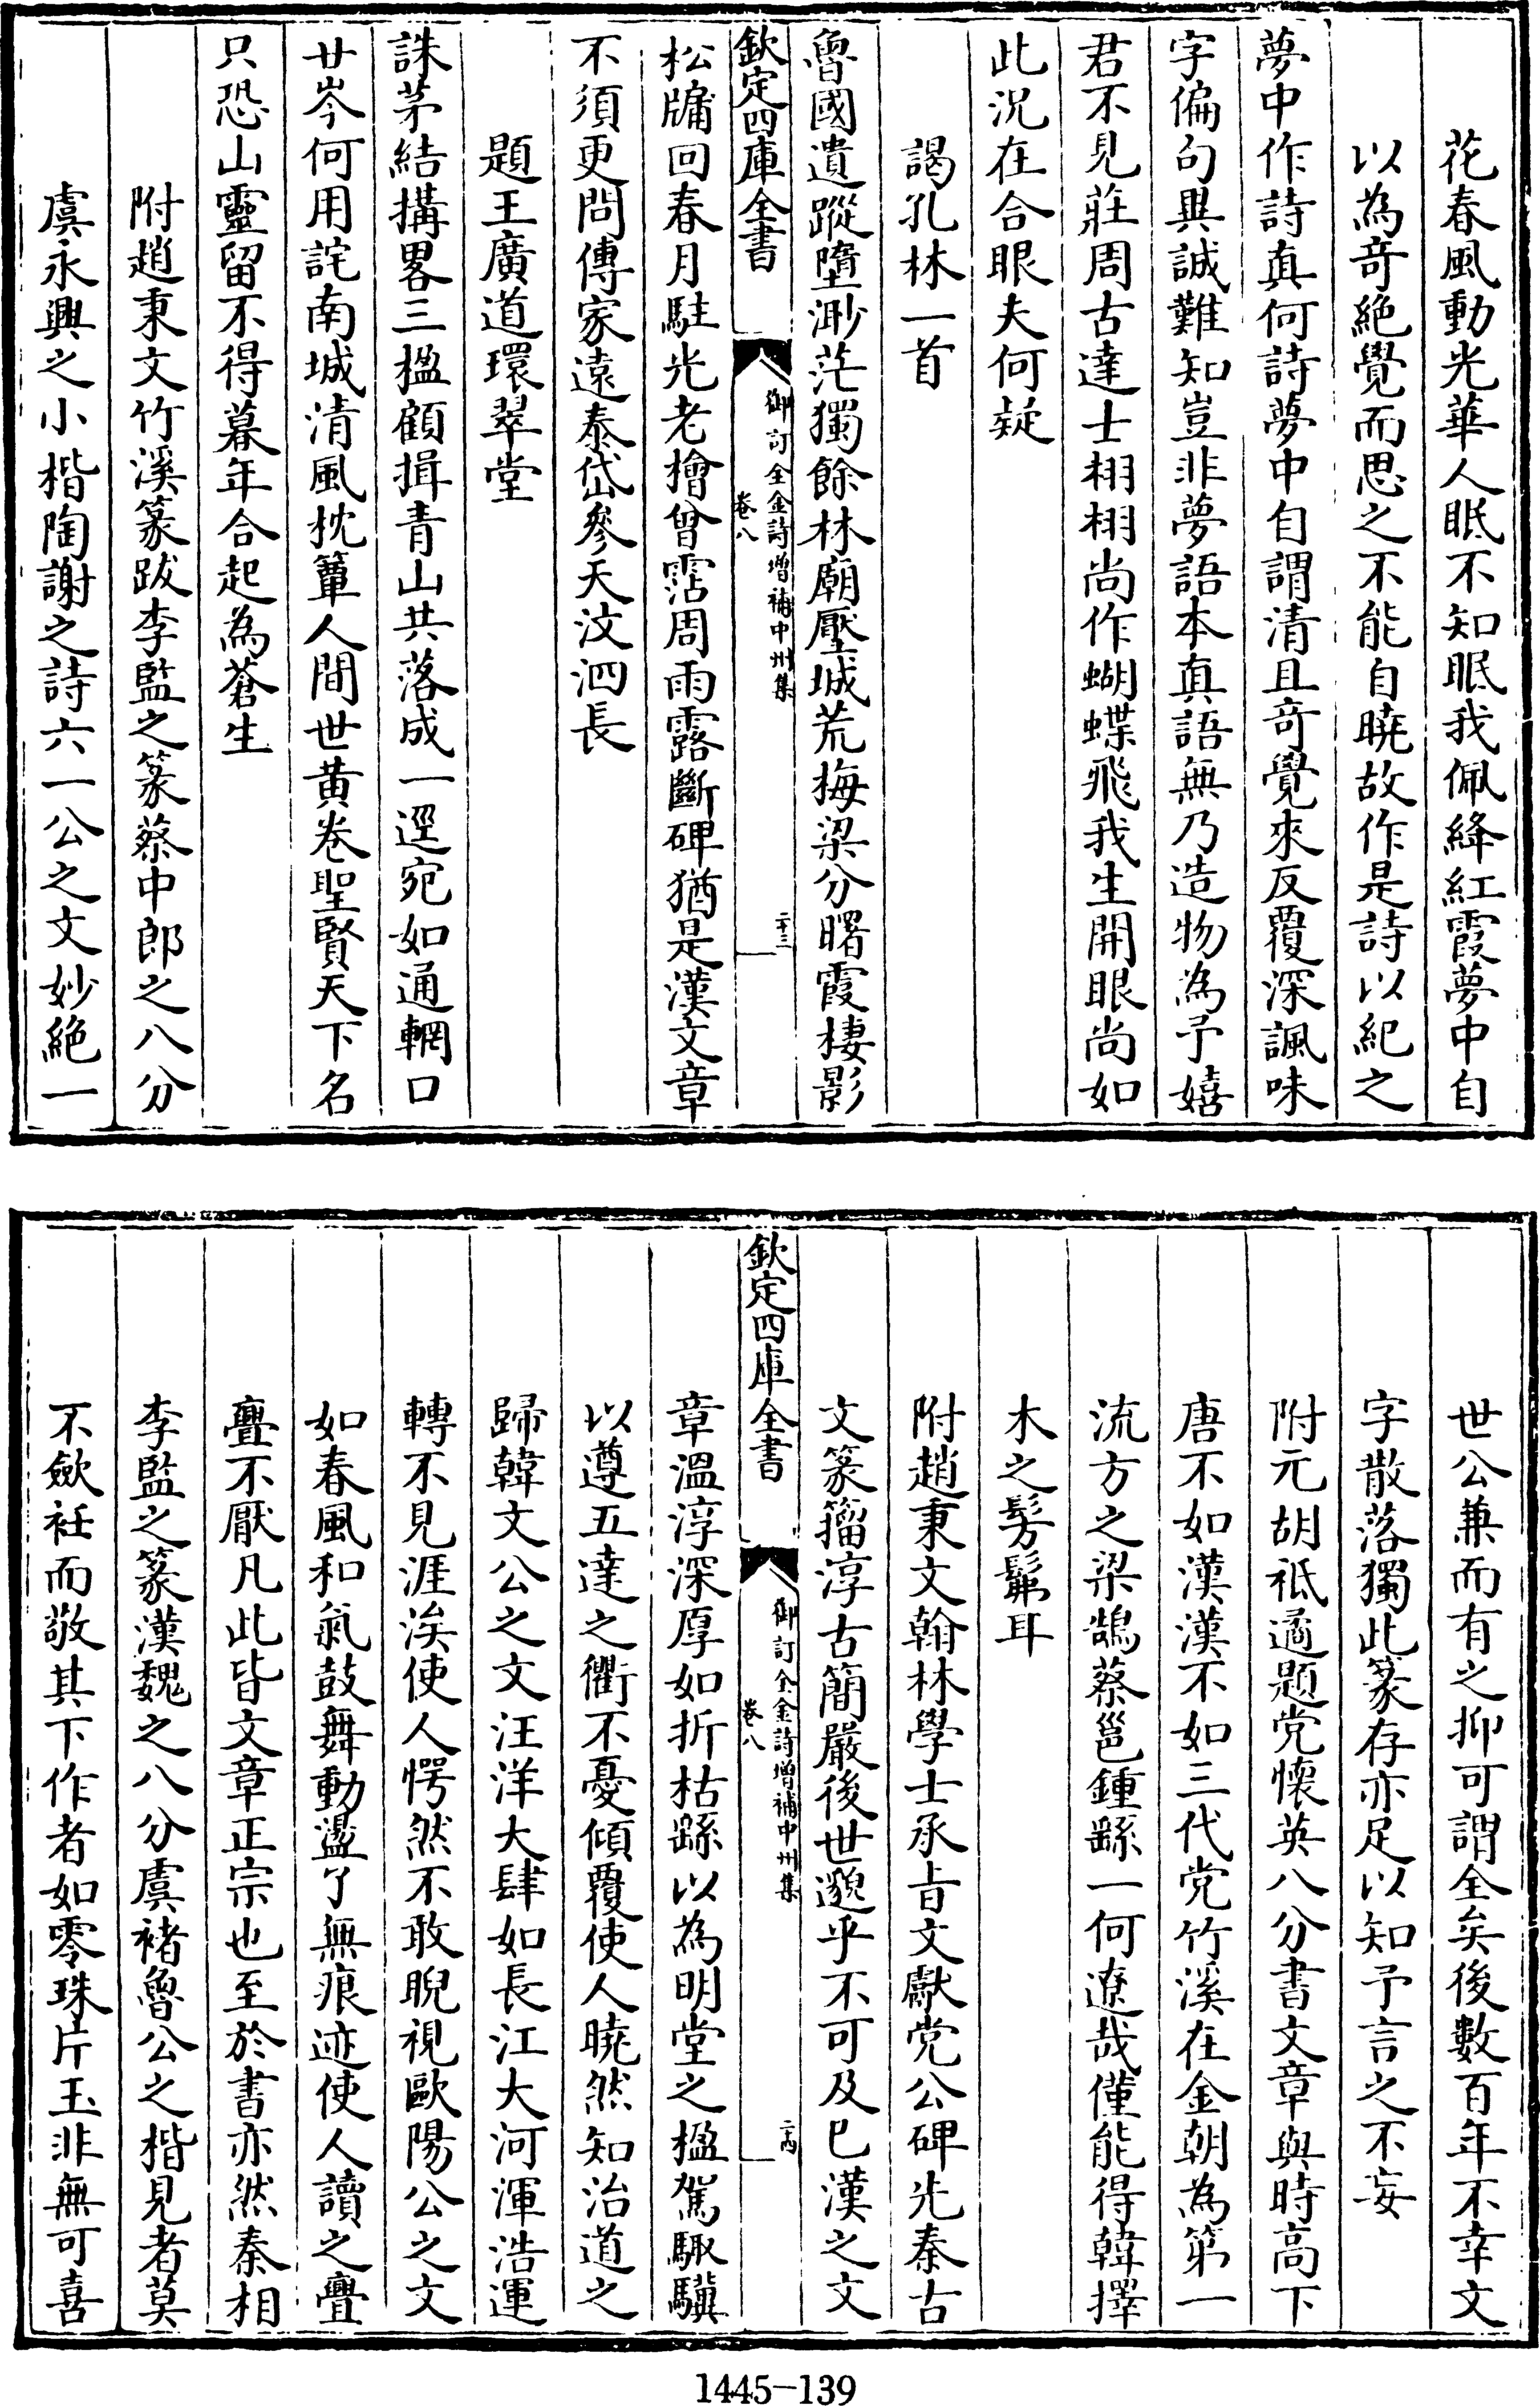 花春風動光華人眠不知眠我佩絳紅霞夢中自
以為奇絶覺而思之不能自曉故作是詩以紀之
夢中作詩真何詩夢中自謂清且奇覺來反覆深諷味
字偏句異誠難知豈非夢語本真語無乃造物為予嬉
君不見莊周古達士栩栩尚作蝴蝶飛我生開眼尚如
此况在合眼夫何疑
謁孔林一首
魯國遺蹤墮渺茫獨餘林廟壓城荒梅梁分曙霞棲影
欽定四庫全書
御訂全金詩增補中州集
卷八
二十三
松牖回春月駐光老檜曾霑周雨露斷碑猶是漢文章
不須更問傳家遠泰岱參天汶泗長
題王廣道環翠堂
誅茅結搆畧三楹顧揖青山共落成一逕宛如通輞口
廿岑何用詫南城清風枕簟人間世黄卷聖賢天下名
只恐山靈留不得暮年合起為蒼生
附趙秉文竹溪篆跋李監之篆蔡中郎之八分
虞永興之小楷陶謝之詩六一公之文妙絶一
世公兼而有之抑可謂全矣後數百年不幸文
字散落獨此篆存亦足以知予言之不妄
附元胡祗遹題党懷英八分書文章與時高下
唐不如漢漢不如三代党竹溪在金朝為第一
流方之梁鵠蔡邕鍾繇一何遼哉僅能得韓擇
木之髣髴耳
附趙秉文翰林學士承旨文獻党公碑先秦古
文篆籀淳古簡嚴後世邈乎不可及已漢之文
欽定四庫全書
御訂全金詩增補中州集
卷八
二十四
章溫淳深厚如折枯繇以為明堂之楹駕騄驥
以遵五達之衢不憂傾覆使人曉然知治道之
歸韓文公之文汪洋大肆如長江大河渾浩運
轉不見涯涘使人愕然不敢睨視歐陽公之文
如春風和氣鼓舞動盪了無痕迹使人讀之亹
亹不厭凡此皆文章正宗也至於書亦然秦相
李監之篆漢魏之八分虞褚魯公之楷見者莫
不歛衽而敬其下作者如零珠片玉非無可喜
1445-139